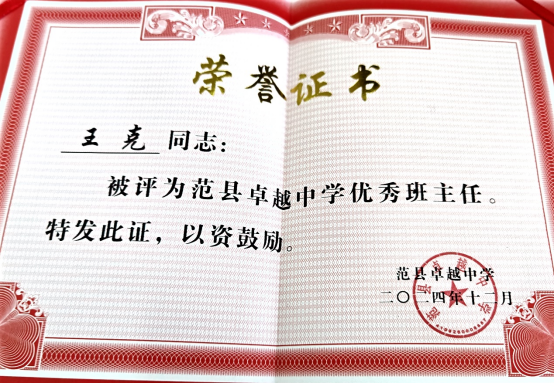 荣誉证书
王克 同志：
被评为范县卓越中学优秀班主任。
特发此证，以资鼓励。
范县卓越中学
二〇二四年十二月
范县卓越中学